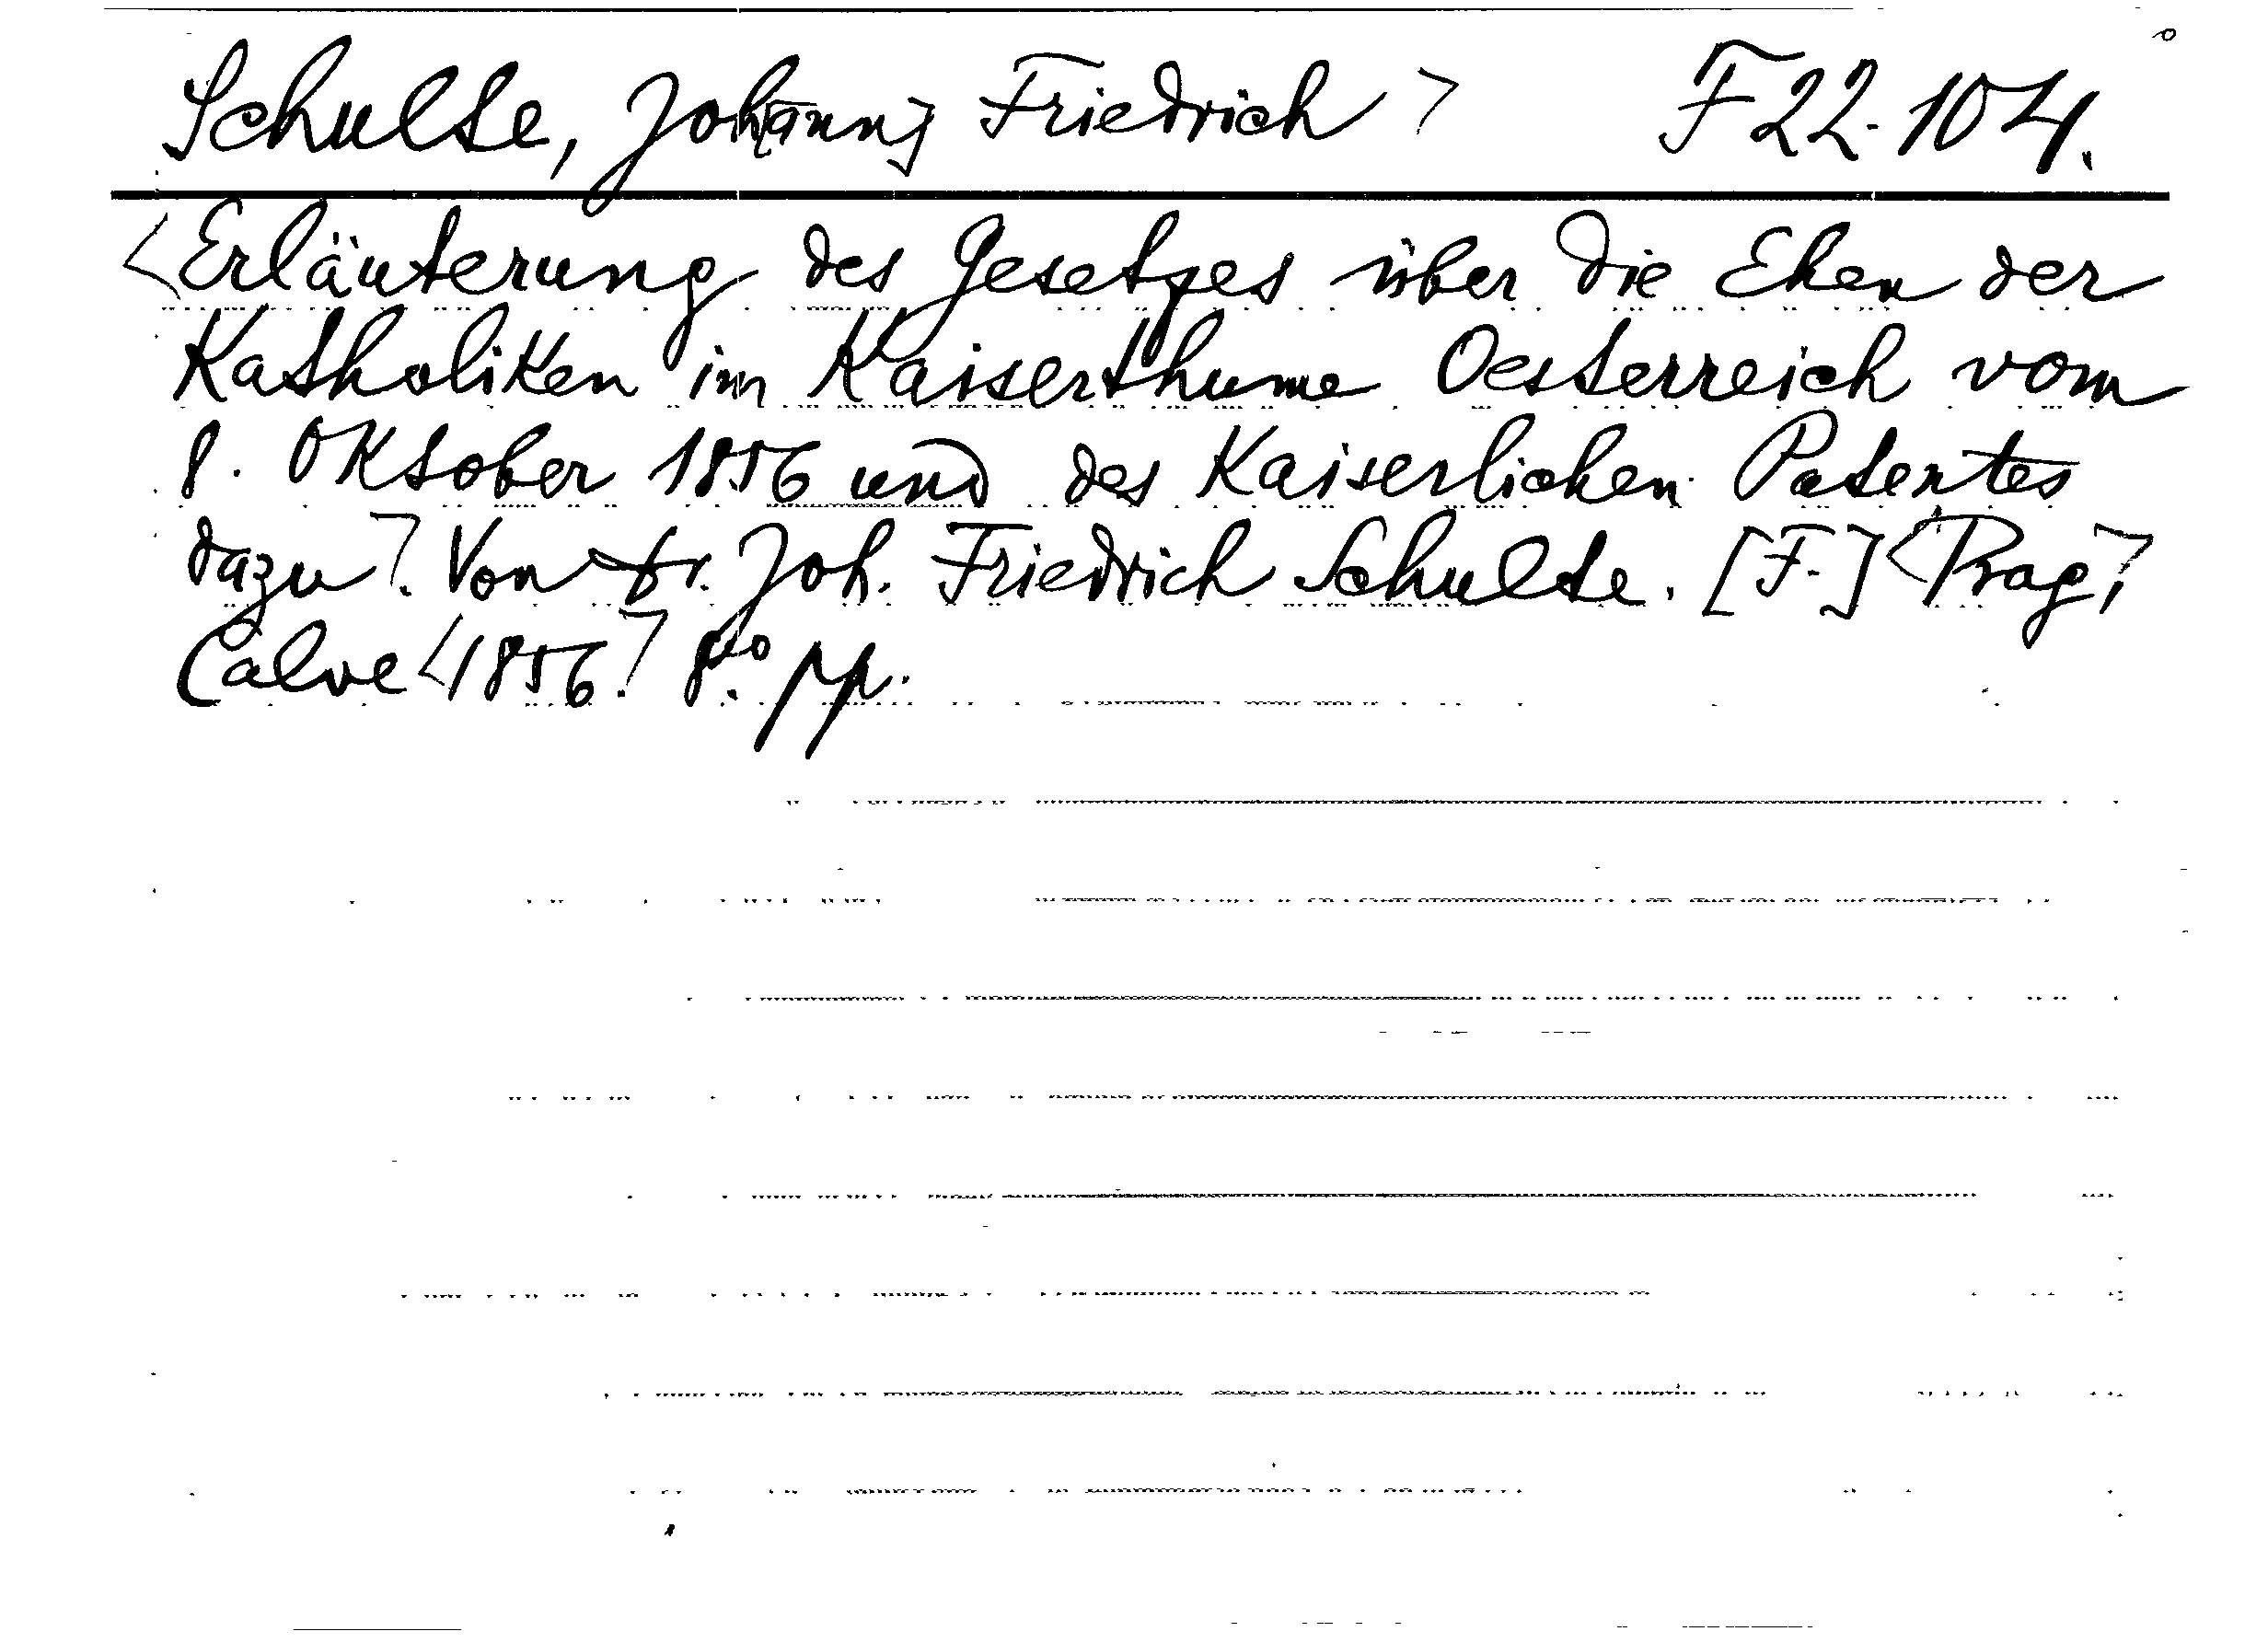 Schulte, Joh[ann] Friedrich > F 22-104.
<Erläuterung des Gesetzes über die Ehen der
Katholiken im Kaiserthume Oesterreich vom
8. Oktober 1856 und des Kaiserlichen Patentes
dazu>. Von Dr. Joh. Friedrich Schulte. [F.] <Prag>,
Calve <1856.> 8.vo pp.